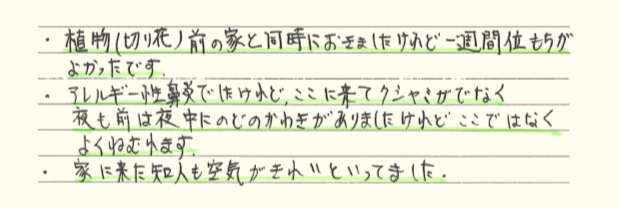 ・植物(切り花)前の家と同時におきましたけれど一週間位もちが
よかったです。
・アレルギー性鼻炎でしたけれど、ここに来てクシャミがでなく
夜も前は夜中にのどのかわきがありましたけれどここではなく
よくねむれます。
・家に来た知人も空気がきれいといってました.